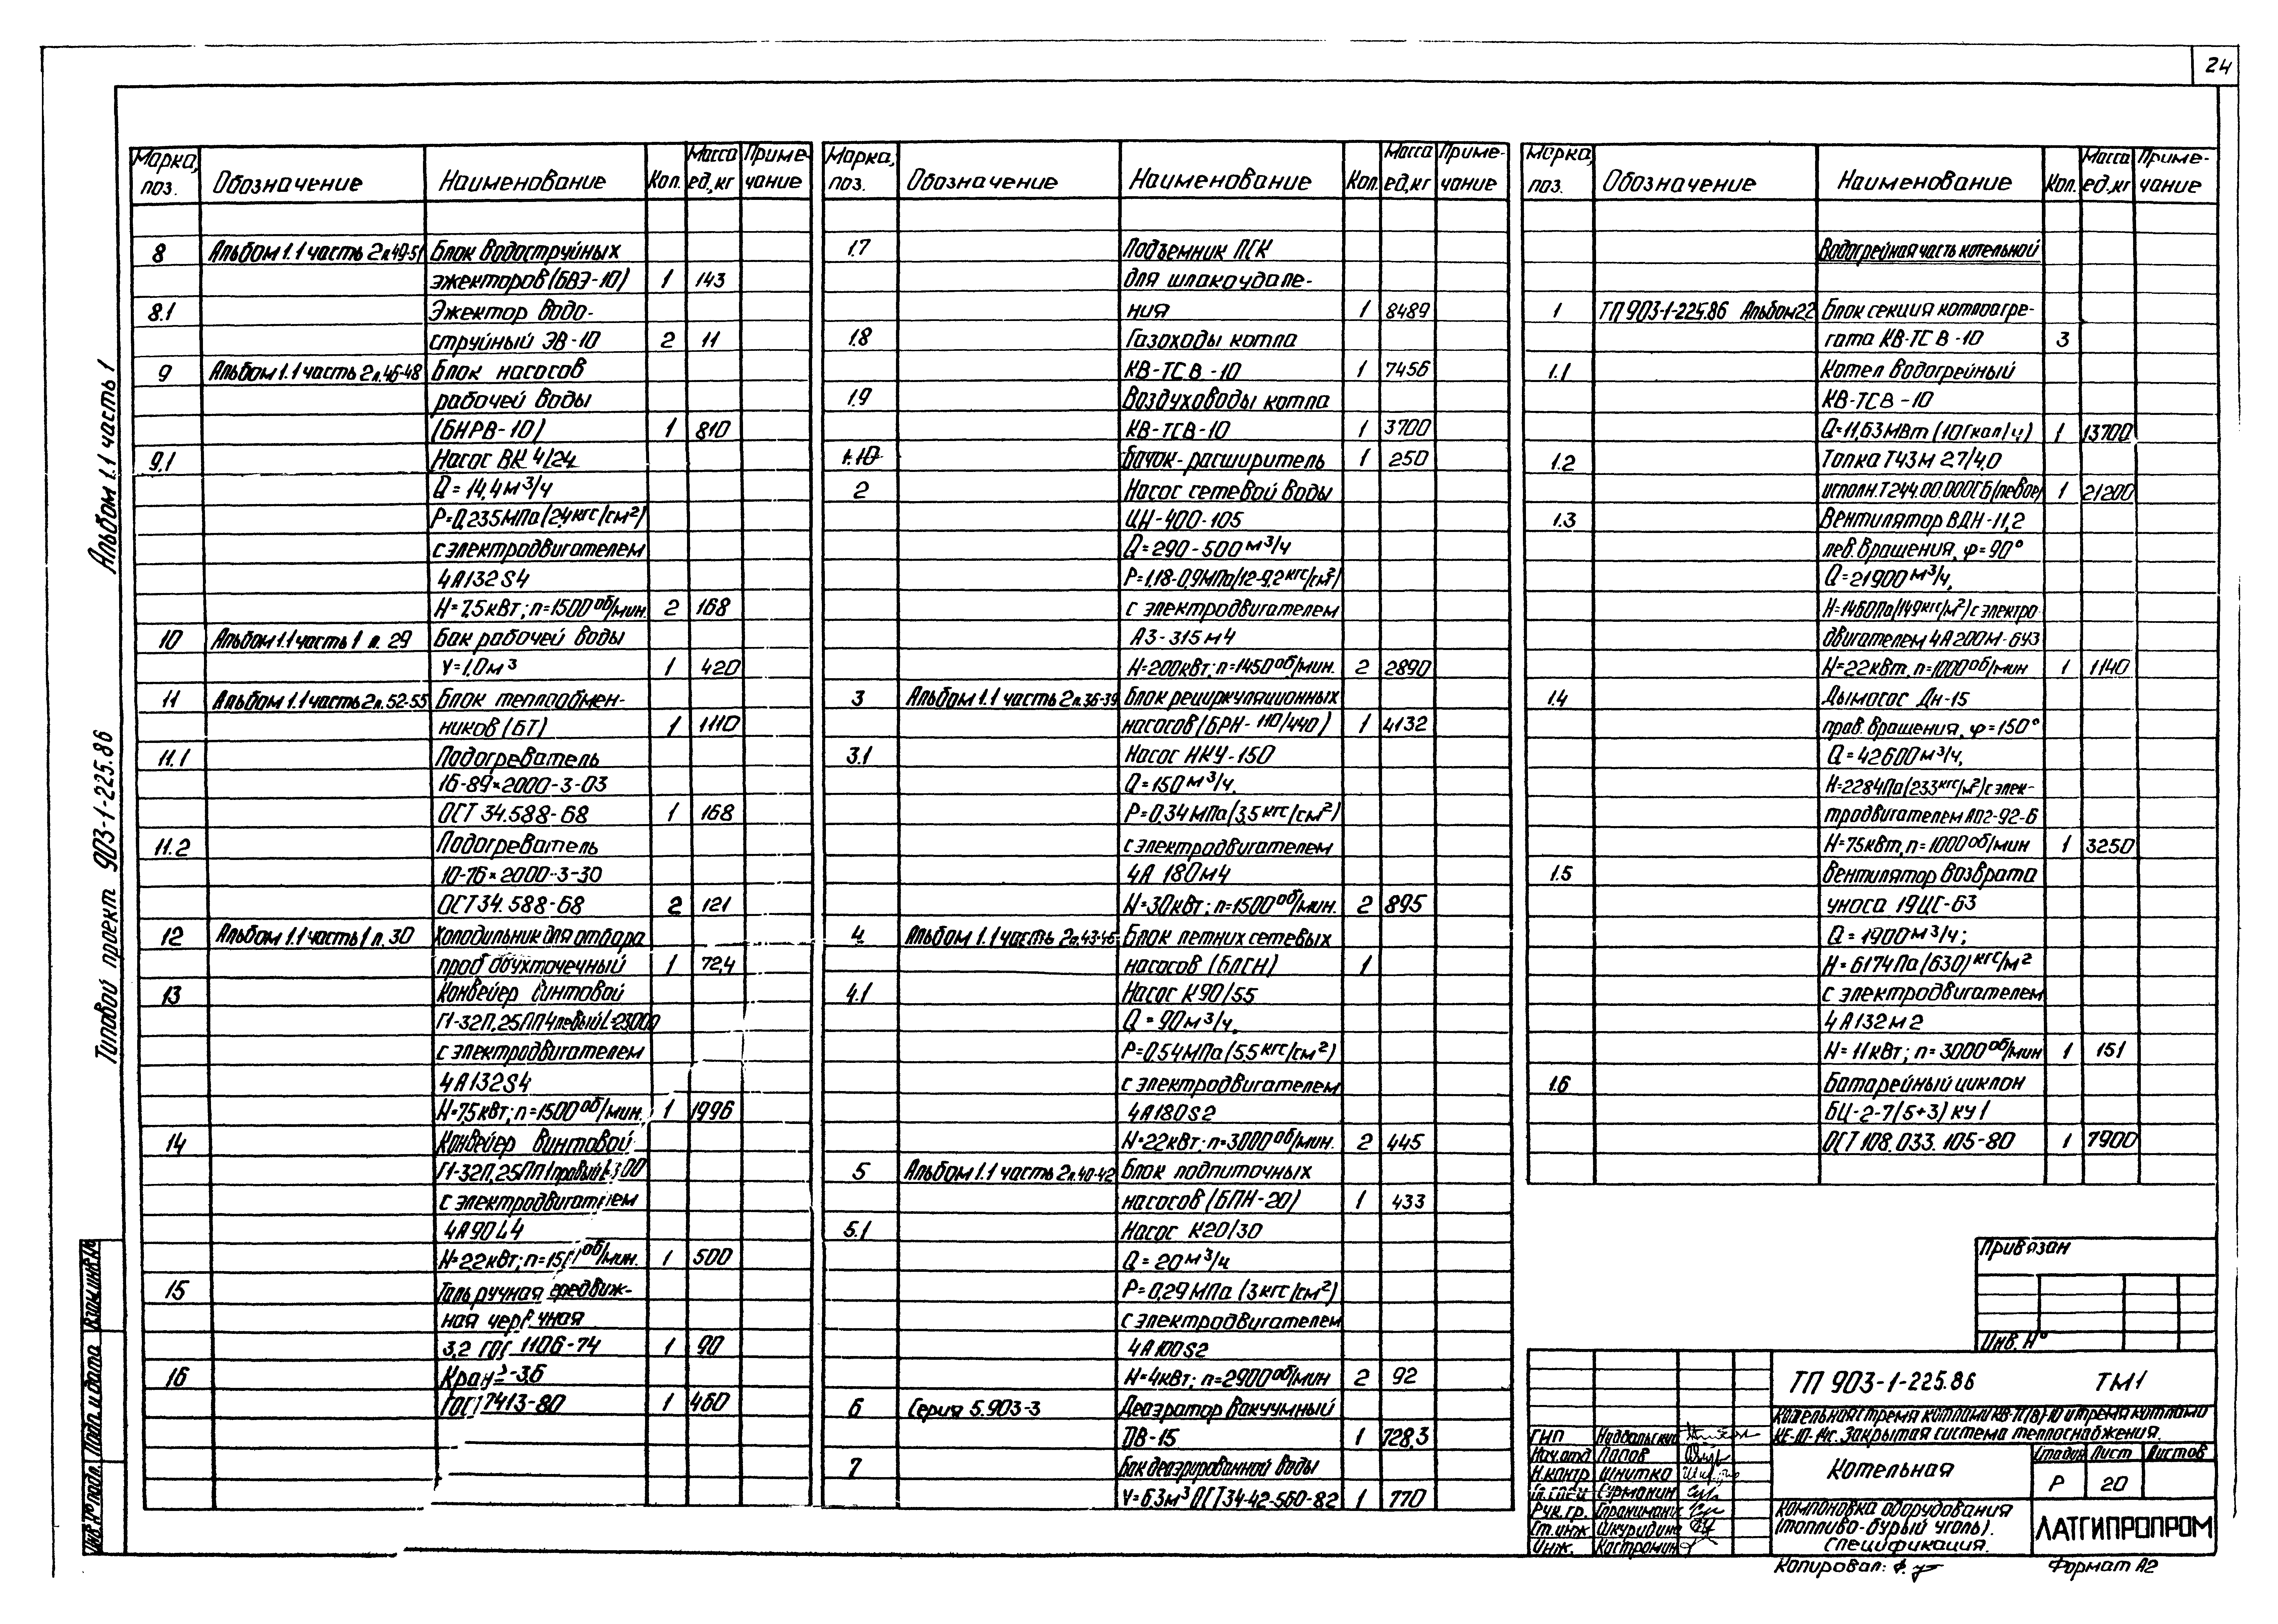 24
Альбом 1.1 часть 1
Типовой проект 903-1-225.86
Марка, поз. Обозначение Наименование Кол. Масса ед,кг Приме-чание
8 Альбом 1.1 часть 2 л.49-51 Блок водоструйных
эжекторов (БВЭ-10) 1 143
8.1 Эжектор водо-
струйный ЭВ-10 2 11
9 Альбом 1.1 часть 2 л.46-48 Блок насосов
рабочей воды
(БНРВ-10) 1 810
9.1 Насос ВК 4/24
Q=14,4м³/ч
Р=0,235МПа(2,4кгс/см²)
с электродвигателем
4А132S4
N=7,5кВт; n=1500об/мин. 2 168
10 Альбом 1.1 часть 1 л. 29 Бак рабочей воды
V=1,0м³ 1 420
11 Альбом 1.1 часть 2 л. 52-55 Блок теплообмен-
ников (БТ) 1 1110
11.1 Подогреватель
16-89×2000-3-03
ОСТ 34.588-68 1 168
11.2 Подогреватель
10-76×2000-3-30
ОСТ 34.588-68 2 121
12 Альбом 1.1 часть 1 л. 30 Холодильник для отбора
проб двухточечный 1 72,4
13 Конвейер винтовой
Г1-32П,25ПП4левый L=23000
с электродвигателем
4А132S4
N=7,5кВт; n=1500об/мин. 1 1996
14 Конвейер винтовой
с электродвигателем
4А90L4
1 500
15 Таль ручная
ная
3,2 ГОС 1106-74 1 90
16 Кран -3,6
ГОСТ 7413-80 1 460
Марка, поз. Обозначение Наименование Кол. Масса ед,кг Приме-чание
1.7 Подъемник ПСК
для шлакоудале-
ния 1 8489
1.8 Газоходы котла
КВ-ТСВ-10 1 7456
1.9 Воздуховоды котла
КВ-ТСВ-10 1 3700
1.10 Бачок-расширитель 1 250
2 Насос сетевой воды
ЦН-400-105
Q=290-500м³/ч
Р=1,18-0,9МПа(12-9,2кгс/см²)
с электродвигателем
А3-315м4
N=200кВт; n=1450об/мин. 2 2890
3 Альбом 1.1 часть 2 л.36-39 Блок рециркуляционных
насосов (БРН-110/440) 1 4132
3.1 Насос НКУ-150
Q=150м³/ч.
Р=0,34МПа(3,5кгс/см²)
с электродвигателем
4А 180м4
N=30кВт; n=1500об/мин. 2 895
4. Альбом 1.1 часть 2 л.43-45 Блок летних сетевых
насосов (БЛСН) 1
4.1 Насос К90/55
Q=90м³/ч.
Р=0,54МПа(5,5кгс/см²)
с электродвигателем
4А180S2
N=22кВт; n=3000об/мин. 2 445
5 Альбом 1.1 часть 2 л.40-42 Блок подпиточных
насосов (БПН-20) 1 433
5.1 Насос К20/30
Q=20м³/ч
Р=0,29МПа (3кгс/см²)
с электродвигателем
4А100S2
N=4кВт; n=2900об/мин 2 92
6 Серия 5.903-3 Деаэратор вакуумный
ДВ-15 1 728,3
7 Бак деаэрированной воды
V=63м³ ОСТ 34-42-560-82 1 770
Марка, поз. Обозначение Наименование Кол. Масса ед,кг Приме-чание
Водогрейная часть котельной
1 ТП 903-1-225.86 Альбом 2.2 Блок секция котлоагре-
гата КВ-ТСВ-10 3
1.1 Котел водогрейный
КВ-ТСВ-10
Q=11,63МВт (10Гкал/ч) 1 13700
1.2 Топка ТЧЗМ 2,7/4,0
исполн.Т244.00.000СБ(левое) 1 21200
1.3 Вентилятор ВДН-11,2
лев.вращения, φ=90°
Q=21900м³/ч,
Н=1460Па(149кгс/м²) с электро
двигателем 4А200М-6У3
N=22кВт, n=1000об/мин 1 1140
1.4 Дымосос Дн-15
прав. вращения, φ=150°
Q=42600м³/ч,
Н=2284Па(233кгс/м²) с элек-
тродвигателем АО2-92-6
N=75кВт, n=1000об/мин 1 3250
1.5 Вентилятор возврата
уноса 19ЦС-63
Q=1900м³/ч;
Н=6174Па(630)кгс/м²
с электродвигателем
4А132м2
N=11кВт; n=3000об/мин 1 151
1.6 Батарейный циклон
БЦ-2-7(5+3)КУ1
ОСТ 108.033.105-80 1 7900
Привязан
Инв. №
ТП 903-1-225.86 ТМ1
Котельная с тремя котлами КВ-ТС(В)-10 и тремя котлами
КЕ-10-14с. Закрытая система теплоснабжения.
ГИП
Нач.отд Попов
Н.контр Шнитко
Гл.спец Сурманин
Рук.гр.
Ст.инж. Шкуридина
Инж. Костромин
Котельная
Стадия Лист Листов
Р 20
Компоновка оборудования
(топливо-бурый уголь).
Спецификация.
ЛАТГИПРОПРОМ
Копировал:
Формат А2
Инв.№ подл. Подп. и дата Взам.инв.№